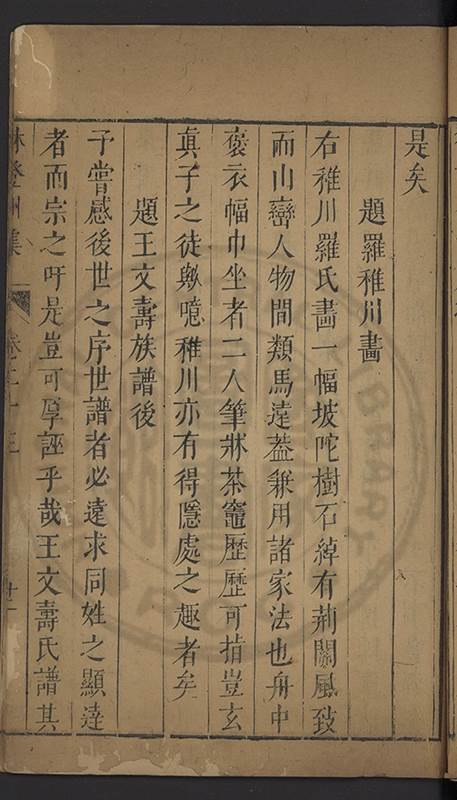 是矣
題羅稚川畵
右稚川羅氏畵一幅坡陀樹石綽有荆關風致
而山巒人物間類馬遠葢兼用諸家法也舟中
褒衣幅巾坐者二人筆牀茶竈歷歷可指豈玄
真子之徒歟噫稚川亦有得隱處之趣者矣
題王文壽族譜後
予嘗感後世之序世譜者必遠求同姓之顯達
者而宗之吁是豈可厚誣乎哉王文壽氏譜其
林登州集 卷二十三